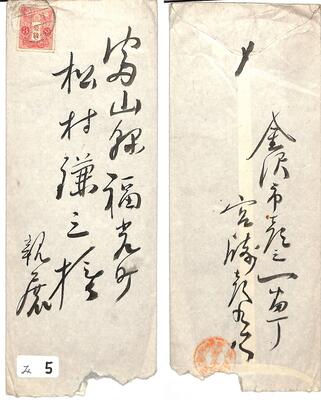 富山縣福光町
松村謙三様
親展
み 5
〆
金沢市彦三一番丁
宮崎彦九